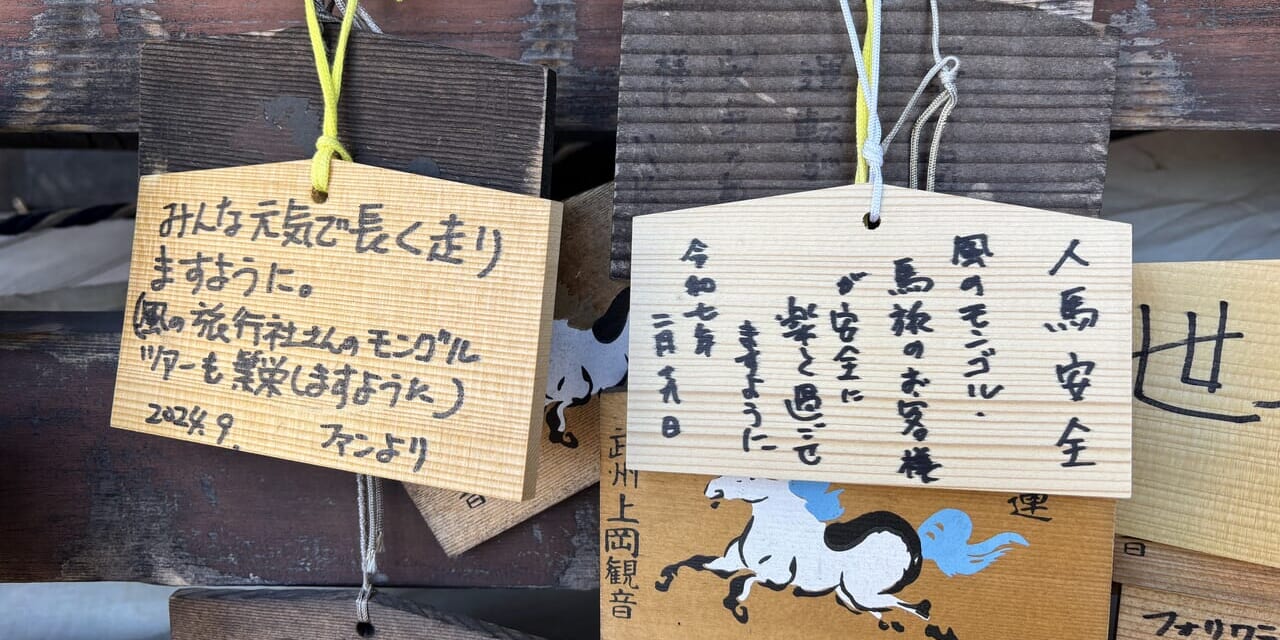 みんな元気で長く走り
ますように。
(風の旅行社さんのモンゴル
ツアーも繁栄しますように)
2024.9.
ファンより
人馬安全
風のモンゴル・
馬旅のお客様
が安全に
楽と過ごせ
ますように
令和七年
二月十八日
世
武州上岡観音
運
日
音
フォリワー